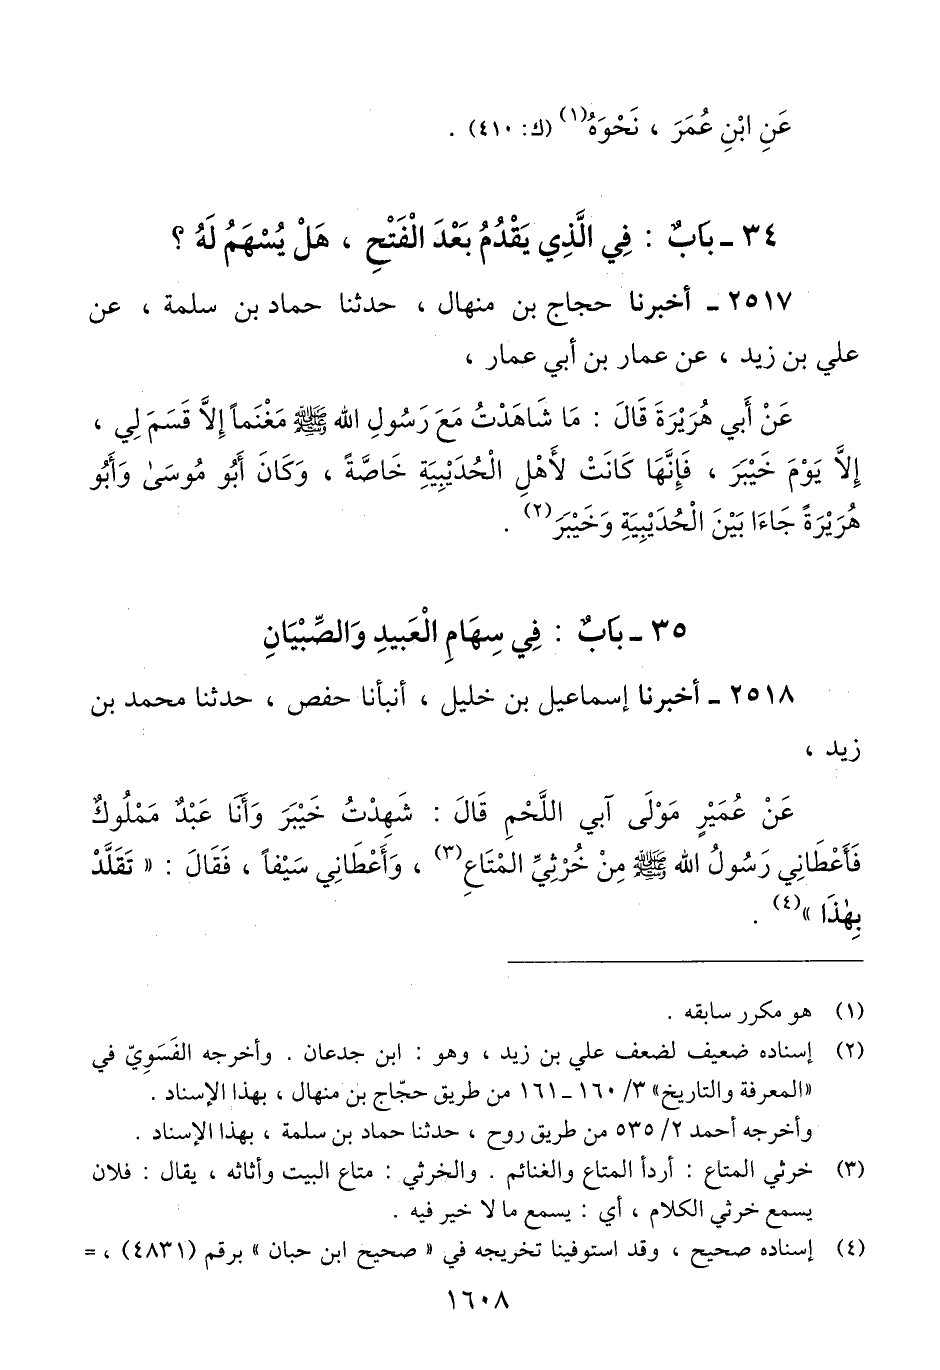 عَنِ ابْنِ عُمَرَ ، نَحْوَهُ(١) (ك: ٤١٠) .
٣٤ ـ بَابٌ : فِي الَّذِي يَقْدُمُ بَعْدَ الْفَتْحِ ، هَلْ يُسْهَمُ لَهُ ؟
٢٥١٧ ـ أخبرنا حجاج بن منهال ، حدثنا حماد بن سلمة ، عن
علي بن زيد ، عن عمار بن أبي عمار ،
عَنْ أَبِي هُرَيْرَةَ قَالَ : مَا شَاهَدْتُ مَعَ رَسُولِ الله ﷺ مَغْنَماً إِلاَّ قَسَمَ لِي ،
إِلاَّ يَوْمَ خَيْبَرَ ، فَإِنَّهَا كَانَتْ لأَهْلِ الْحُدَيْبِيَةِ خَاصَّةً ، وَكَانَ أَبُو مُوسَىٰ وَأَبُو
هُرَيْرَةَ جَاءَا بَيْنَ الْحُدَيْبِيَةِ وَخَيْبَرَ(٢) .
٣٥ ـ بَابٌ : فِي سِهَامِ الْعَبِيدِ وَالصِّبْيَانِ
٢٥١٨ ـ أخبرنا إسماعيل بن خليل ، أنبأنا حفص ، حدثنا محمد بن
زيد ،
عَنْ عُمَيْرٍ مَوْلَى آبي اللَّحْمِ قَالَ : شَهِدْتُ خَيْبَرَ وَأَنَا عَبْدٌ مَمْلُوكٌ
فَأَعْطَانِي رَسُولُ الله ﷺ مِنْ خُرْثِيِّ الْمَتَاعِ(٣) ، وَأَعْطَانِي سَيْفاً ، فَقَالَ : « تَقَلَّدْ
بِهٰذَا »(٤) .
(١) هو مكرر سابقه .
(٢) إسناده ضعيف لضعف علي بن زيد ، وهو : ابن جدعان . وأخرجه الفَسَوِيّ في
«المعرفة والتاريخ» ٣/ ١٦٠ ـ ١٦١ من طريق حجّاج بن منهال ، بهذا الإسناد .
وأخرجه أحمد ٢/ ٥٣٥ من طريق روح ، حدثنا حماد بن سلمة ، بهذا الإسناد .
(٣) خرثي المتاع : أردأ المتاع والغنائم . والخرثي : متاع البيت وأثاثه ، يقال : فلان
يسمع خرثي الكلام ، أي : يسمع ما لا خير فيه .
(٤) إسناده صحيح ، وقد استوفينا تخريجه في « صحيح ابن حبان » برقم (٤٨٣١) ، =
١٦٠٨